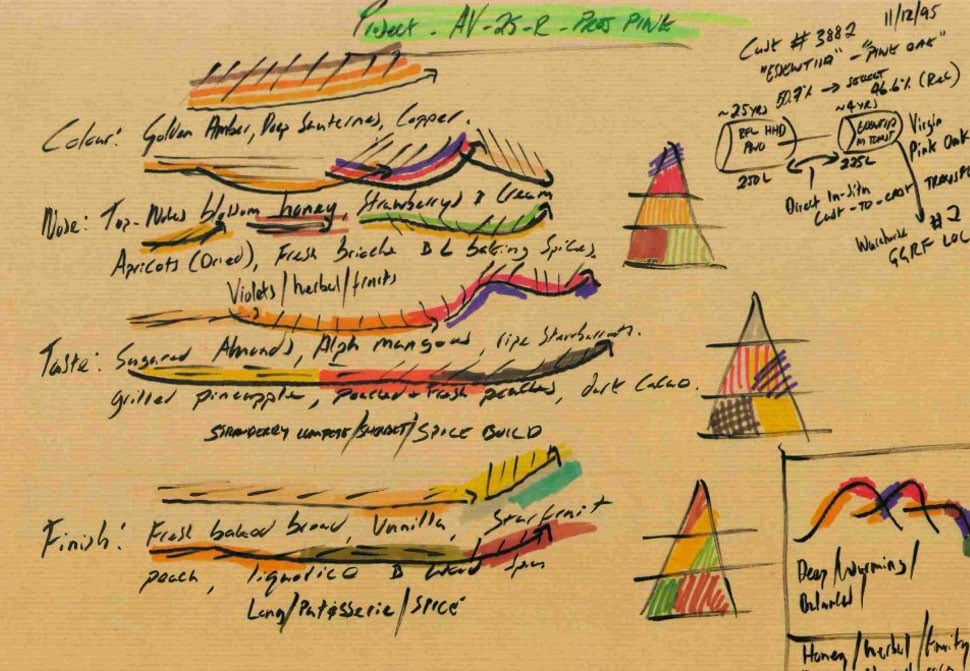 Project - AV-25-R - Pres Pink
11/12/95
Cask # 3882
"PINK OAK"
50.7% → 46.6% (Red)
~25 YRS
~4 YRS
RFL HHD
250L
225L
Virgin
Pink Oak
Direct In-situ
Cask-TO-cask
Warehouse #2
GGRF LOC
Colour: Golden Amber, Deep Sauternes, Copper.
Nose: Top-Notes blossom honey, Strawberrys & Cream
Apricots (Dried), Fresh brioche & baking Spices,
Violets/herbal/fruits
Taste: Sugared Almonds, Alph mangoes, ripe Starburrants.
grilled pineapple, poached + Fresh peaches, dark Cacao.
STRAWBERRY COMPOTE/SHERBET/SPICE BUILD
Finish: Fresh baked bread, Vanilla, Starfruit
peach, liquorice &
Long/Patisserie/SPICE
Deep/Warming/
Balanced
Honey/herbal/fruity